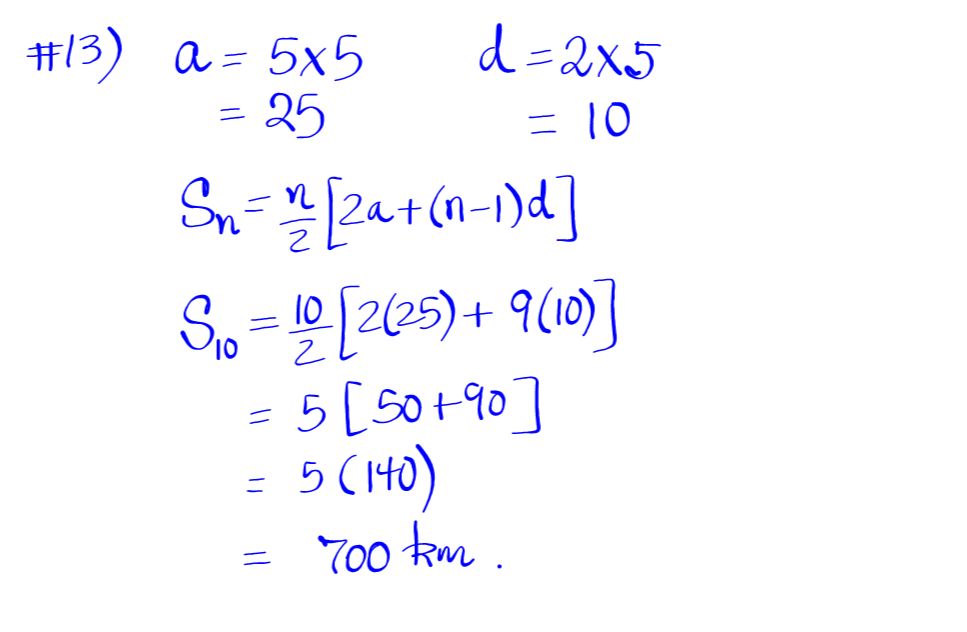 #13) a = 5x5 d = 2x5
= 25 = 10
Sn = n/2 [2a+(n-1)d]
S10 = 10/2 [2(25) + 9(10)]
= 5 [50+90]
= 5 (140)
= 700 km.